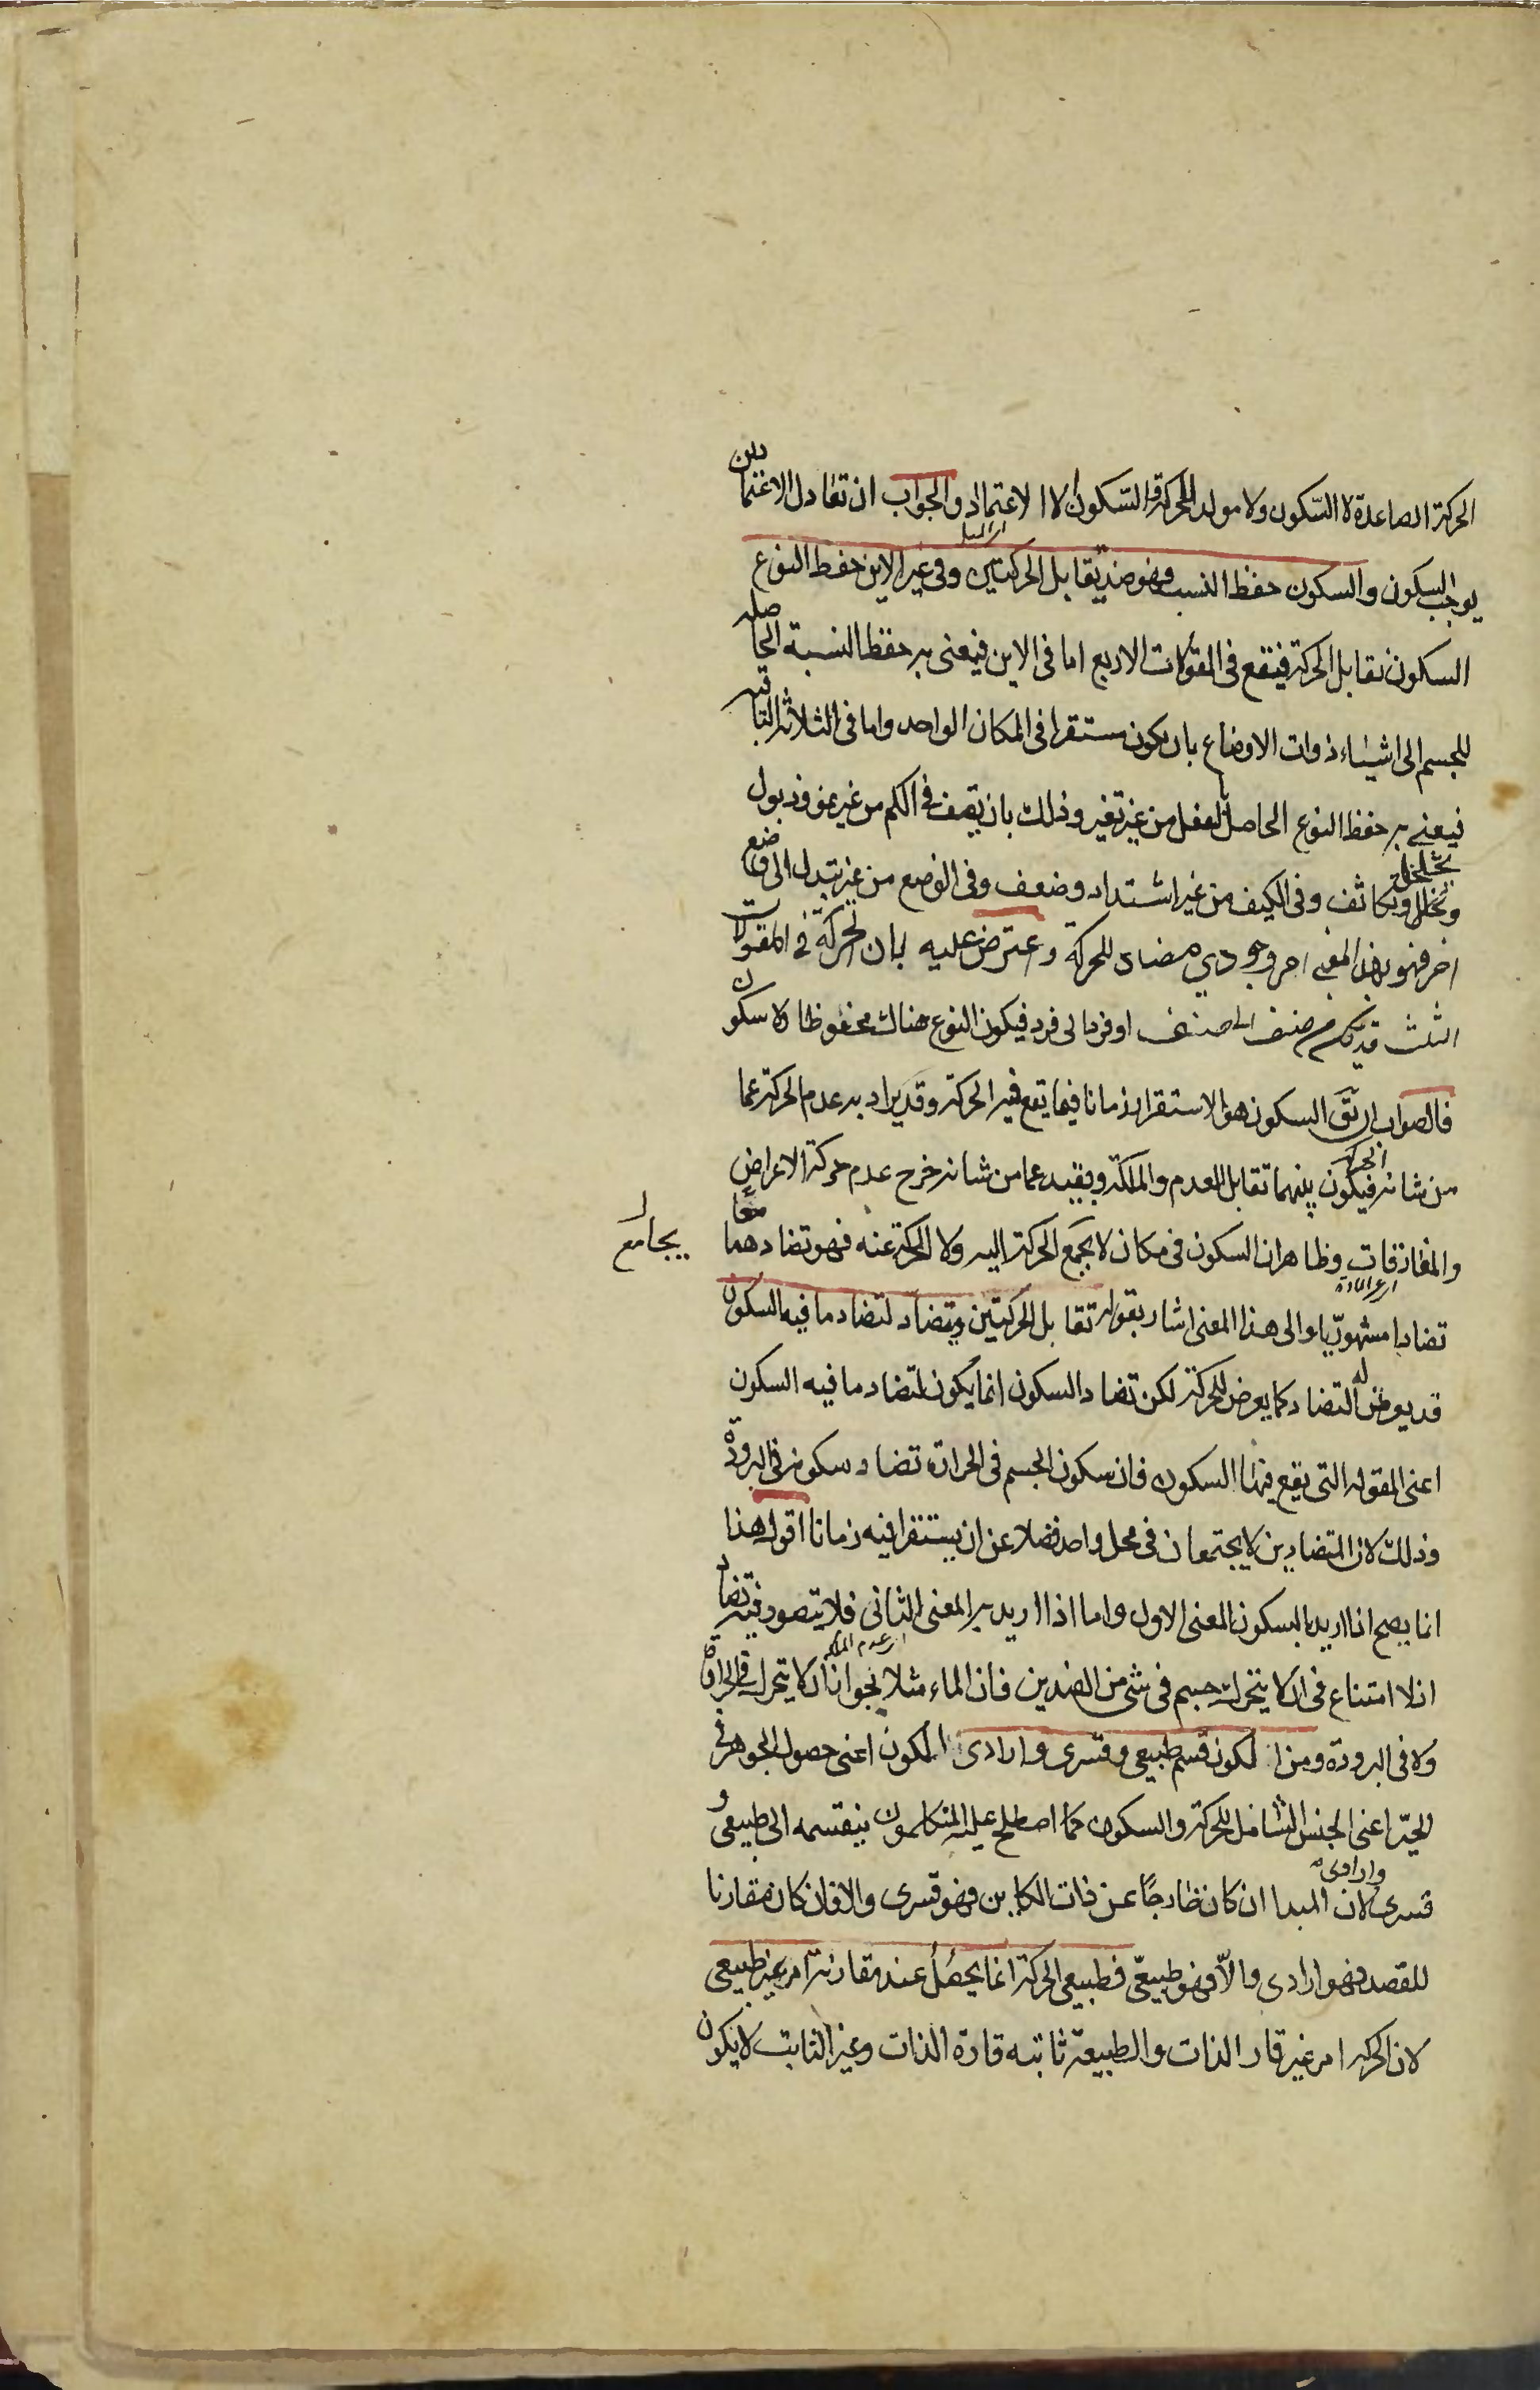 الحركة الصاعدة لا السكون ولا مولد للحركة والسكون الا الاعتماد والجواب ان تعادل الاعتمادين
يوجب السكون والسكون حفظ النسب فهو ضد يقابل الحركتين وفى غير الاين حفظ النوع
السكون تقابل الحركة فيقع فى المقولات الاربع اما فى الاين فيعنى به حفظ النسبة الحاصلة
للجسم الى اشياء ذوات الاوضاع بان يكون مستقرا فى المكان الواحد واما فى الثلاثة الباقية
فيعنى به حفظ النوع الحاصل بالفعل من غير تغير وذلك بان يقف فى الكم من غير نمو وذبول
وتخلخل وتكاثف وفى الكيف من غير اشتداد وضعف وفى الوضع من غير تبدل الى وضع
اخر فهو بهذا المعنى امر وجودي مضاد للحركة واعترض عليه بان الحركة فى المقولات
الثلث قد تكون من صنف الى صنف او فرد الى فرد فيكون النوع هناك محفوظا ولا سكون
فالصواب ان يق السكون هو الاستقرار زمانا فيما يقع فيه الحركة وقد يراد به عدم الحركة عما
من شانه الحركة فيكون بينهما تقابل العدم والملكة وبقيد عما من شانه خرج عدم حركة الاعراض
والمفارقات وظاهر ان السكون فى مكان لا يجمع الحركة اليه ولا الحركة عنه فهو تضادهما معا
يجامع
تضادا مشهوريا والى هذا المعنى اشار بقوله تقابل الحركتين ويتضاد لتضاد ما فيه السكون
قد يعرض له التضاد كما يعرض للحركة لكن تضاد السكون انما يكون لتضاد ما فيه السكون
اعنى المقولة التى يقع فيها السكون فان سكون الجسم فى الحرارة تضاد سكونه فى البرودة
وذلك لان المتضادين لا يجتمعان فى محل واحد فضلا عن ان يستقرا فيه زمانا اقول هذا
انما يصح اذا اريد بالسكون المعنى الاول واما اذا اريد به المعنى الثانى فلا يتصور فيه تضاد
اذ لا امتناع فى ان لا يتحرك جسم فى شى من الضدين فان الماء مثلا يجوز ان لا يتحرك فى الحرارة
ولا فى البرودة ومن الكون قسم طبيعى وقسرى وارادى الكون اعنى حصول الجوهر فى
الحيز اعنى الجنس الشامل للحركة والسكون كما اصطلح عليه المتكلمون ينقسم الى طبيعى و
قسرى وارادى لان المبدا ان كان خارجا عن ذات الكاين فهو قسرى والا فان كان مقارنا
للقصد فهو ارادى والا فهو طبيعى فطبيعى الحركة انما يحصل عند مقارنة امر غير طبيعى
لان الحركة امر غير قار الذات والطبيعة ثابتة قارة الذات وغير الثابت لا يكون